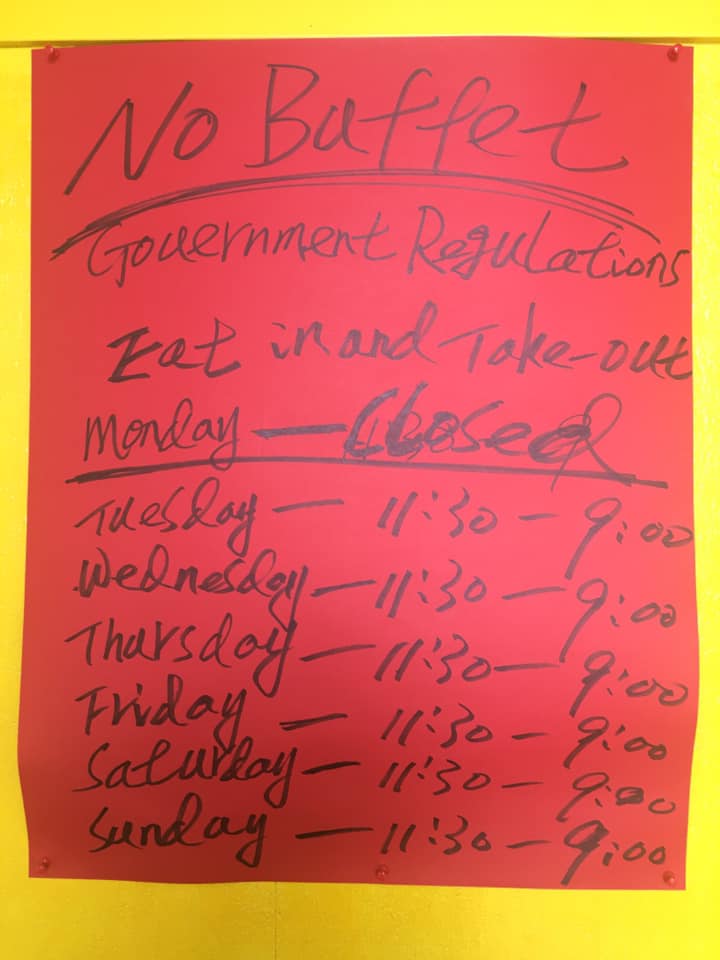 No Buffet
Government Regulations
Eat in and Take-out
Monday — Closed
Tuesday — 11:30 — 9:00
Wednesday — 11:30 — 9:00
Thursday — 11:30 — 9:00
Friday — 11:30 — 9:00
Saturday — 11:30 — 9:00
Sunday — 11:30 — 9:00